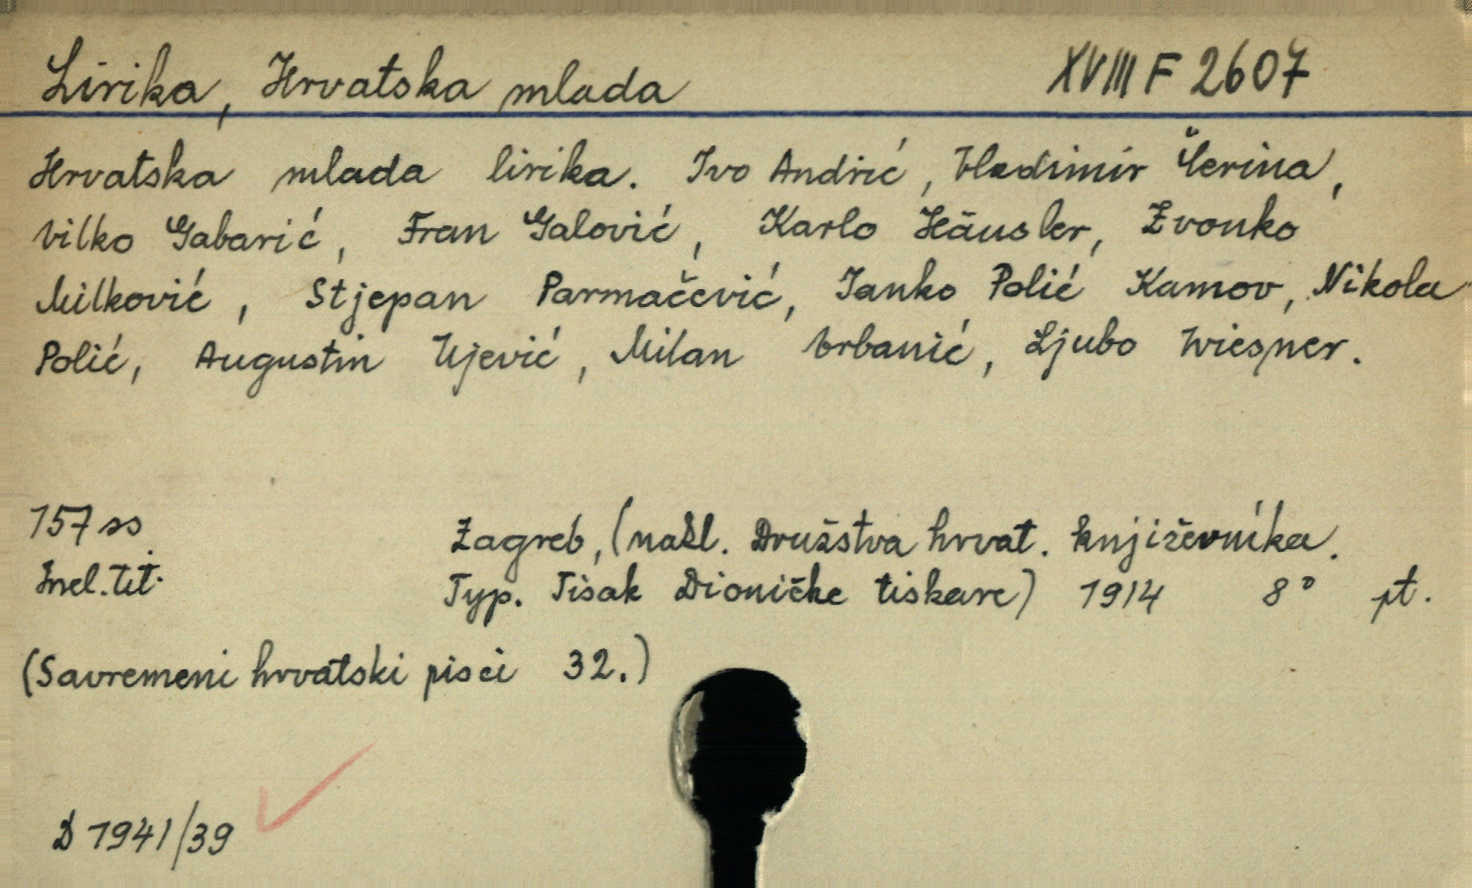 Lirika, Hrvatska mlada XVIII F 2607
Hrvatska mlada lirika. Ivo Andrić, Vladimir Čerina,
Vilko Gabarić, Fran Galović, Karlo Häusler, Zvonko
Milković, Stjepan Parmačević, Janko Polić Kamov, Nikola
Polić, Augustin Ujević, Milan Vrbanić, Ljubo Wiesner.
157 ss Zagreb, (nakl. Društva hrvat. književnika.
Inel. tit. Typ. Tisak Dioničke tiskare) 1914 8° pt.
(Savremeni hrvatski pisci 32.)
D 1941/39